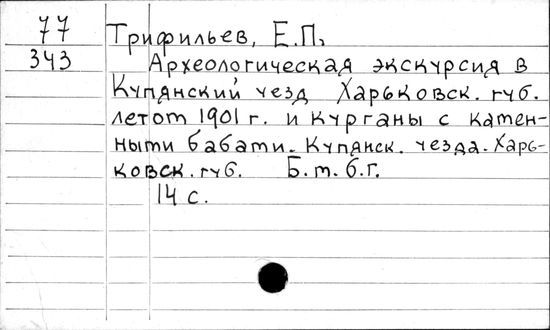 77 Трифильев, Е.П.
343 Археологическая экскурсия в
Купянский уезд Харьковск. губ.
летом 1901 г. и курганы с камен-
ными бабами. Купянск. уезда. Харь-
ковск. губ. Б.м.б.г.
14 с.